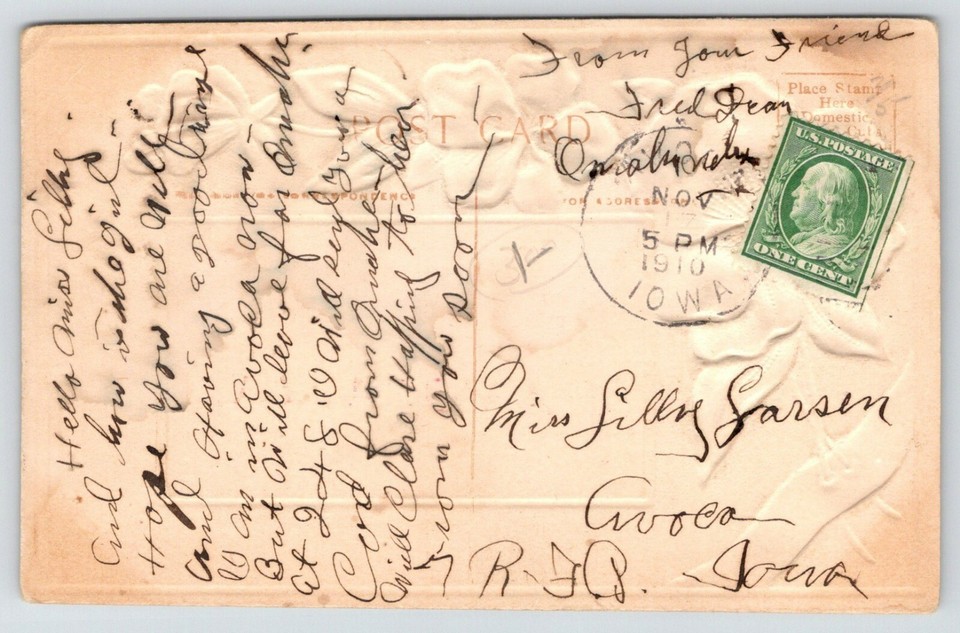 Hello Miss Lilly
and how is the girl
Hope you are Well
and Having a good Time
I am in Avoca now
But Will leave for Omaha
at 2 48 I Will send you a
Card from Omaha
Will Clare Happing to hear
from you soon
From your Friend
Fred Dean
Omaha
POST CARD
Place Stamp
Here
Domestic
CORRESPONDENCE
FOR ADDRESS
NOV
17
5 PM
1910
IOWA
U.S. POSTAGE
ONE CENT
Miss Lilly Larsen
Avoca
R.F.D. Iowa